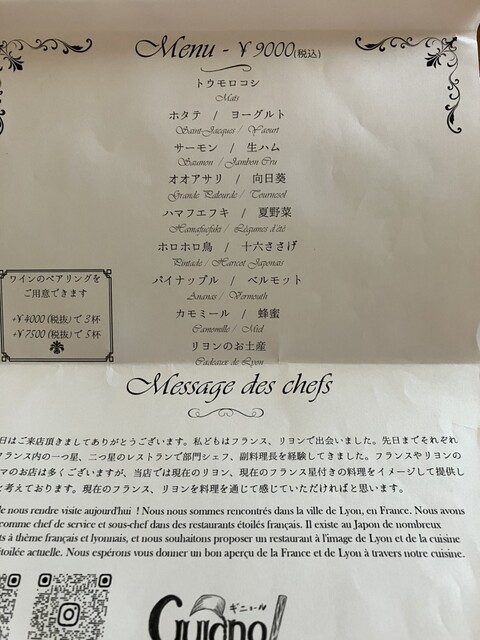 Menu - ¥ 9000(税込)
トウモロコシ
Maïs
ホタテ / ヨーグルト
Saint-Jacques / Yaourt
サーモン / 生ハム
Saumon / Jambon Cru
オオアサリ / 向日葵
Grande Palourde / Tournesol
ハマフエフキ / 夏野菜
Hamafuefuki / Légumes d'été
ホロホロ鳥 / 十六ささげ
Pintade / Haricot Japonais
パイナップル / ベルモット
Ananas / Vermouth
カモミール / 蜂蜜
Camomille / Miel
リヨンのお土産
Cadeaux de Lyon
ワインのペアリングを
ご用意できます
+¥4000 (税抜) で 3杯
+¥7500 (税抜) で 5杯
Message des chefs
日はご来店頂きましてありがとうございます。私どもはフランス、リヨンで出会いました。先日までそれぞれ
フランス内の一つ星、二つ星のレストランで部門シェフ、副料理長を経験してきました。フランスやリヨンの
マのお店は多くございますが、当店では現在のリヨン、現在のフランス星付きの料理をイメージして提供し
と考えております。現在のフランス、リヨンを料理を通じて感じていただければと思います。
de nous rendre visite aujourd'hui ! Nous nous sommes rencontrés dans la ville de Lyon, en France. Nous avons
comme chef de service et sous-chef dans des restaurants étoilés français. Il existe au Japon de nombreux
ts à thème français et lyonnais, et nous souhaitons proposer un restaurant à l'image de Lyon et de la cuisine
étoilée actuelle. Nous espérons vous donner un bon aperçu de la France et de Lyon à travers notre cuisine.
ギニョール
Guignol